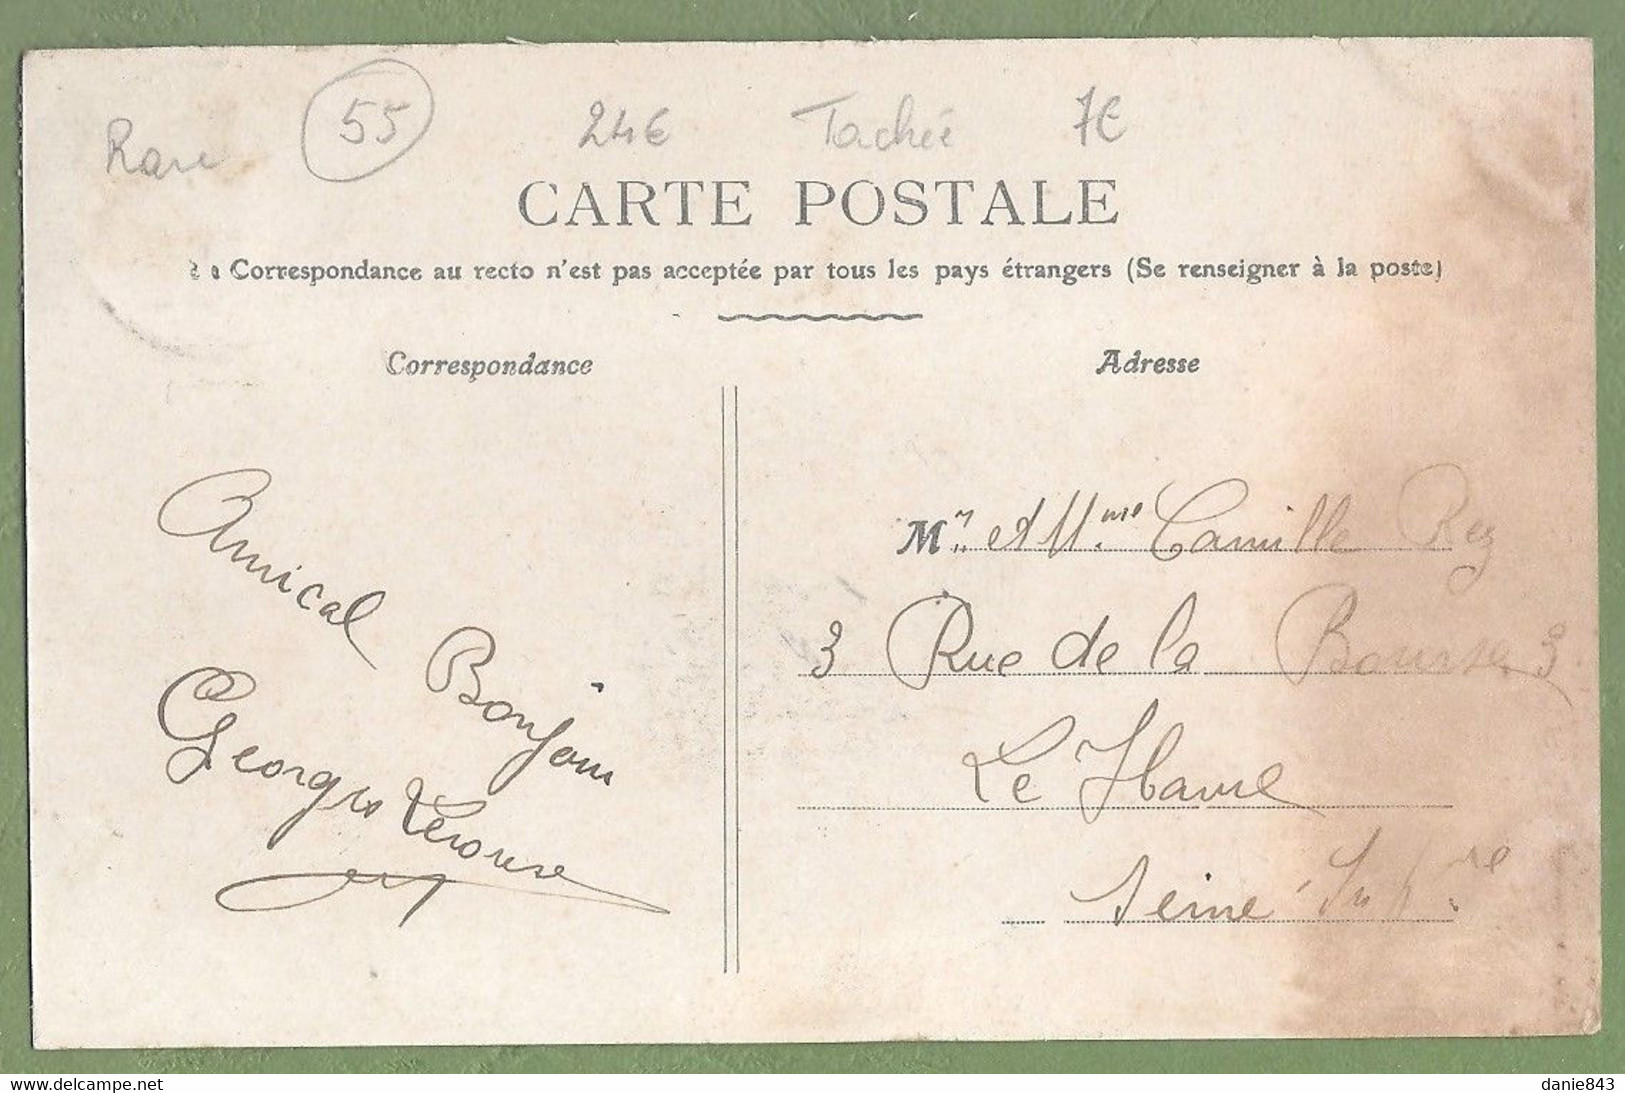 Rare 55 24€ Tachée 7€
CARTE POSTALE
La Correspondance au recto n'est pas acceptée par tous les pays étrangers (Se renseigner à la poste)
Correspondance
Adresse
Amical Bonjour
Georges
Mr. et Mme Camille Rey
3 Rue de la Bourse 3
Le Havre
Seine Infre
delcampe.net
danie843